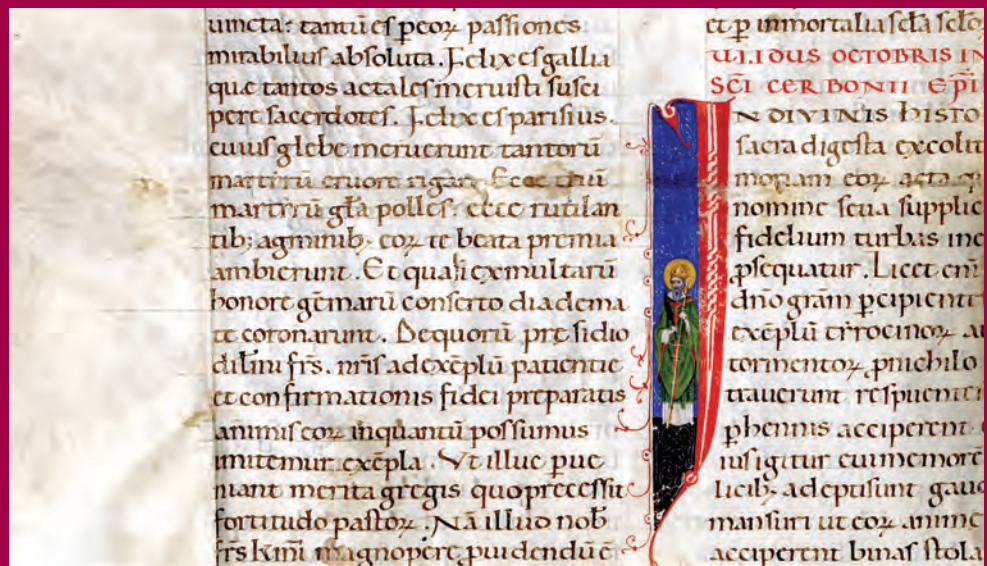 uincta: tantū eſ pcoꝝ paſſiones
mirabiliuſ abſoluta. Felix eſ gallia
que tantos ac taleſ meruiſti ſuſci
pere ſacerdotes. Felix eſ pariſius.
cuiuſ glebe meruerunt tantorū
martirū cruore rigari. Ecce
martirū gła polleſ. ecce rutilan
tib; agminib; eoꝝ te beata premia
ambierunt. Et quaſi ex multarū
honore gēmarū conſerto diadema
te coronarunt. De quorū preſidio
frs. nris ad exēplū patientie
et confirmationis fidei preparatis
animiſ eoꝝ inquantū poſſumus
imitemur exēpla. Vt illuc pue
niant merita gregis quo preceſſit
fortitudo paſtoꝝ. Nā illud nob̄
frs kmi magnopere puidendū ē
et p immortalia ſcła ſcło
UI. IDUS OCTOBRIS IN
SC̄I CERBONII EPI
IN DIVINIS HISTO
ſacra digeſta excolit
moriam eoꝝ acta
nomine ſeua ſupplic
fidelium turbas inc
pſequatur. Licet eni
dn̄o grām pcipiente
exēplū trrocinoꝝ au
tormentoꝝ pnichilo
trauerunt reſpuente
phennis acciperent
iuſ igitur cui memore
licib; adepti ſunt gaud
manſuri ut eoꝝ anime
acciperent binaſ ſtola